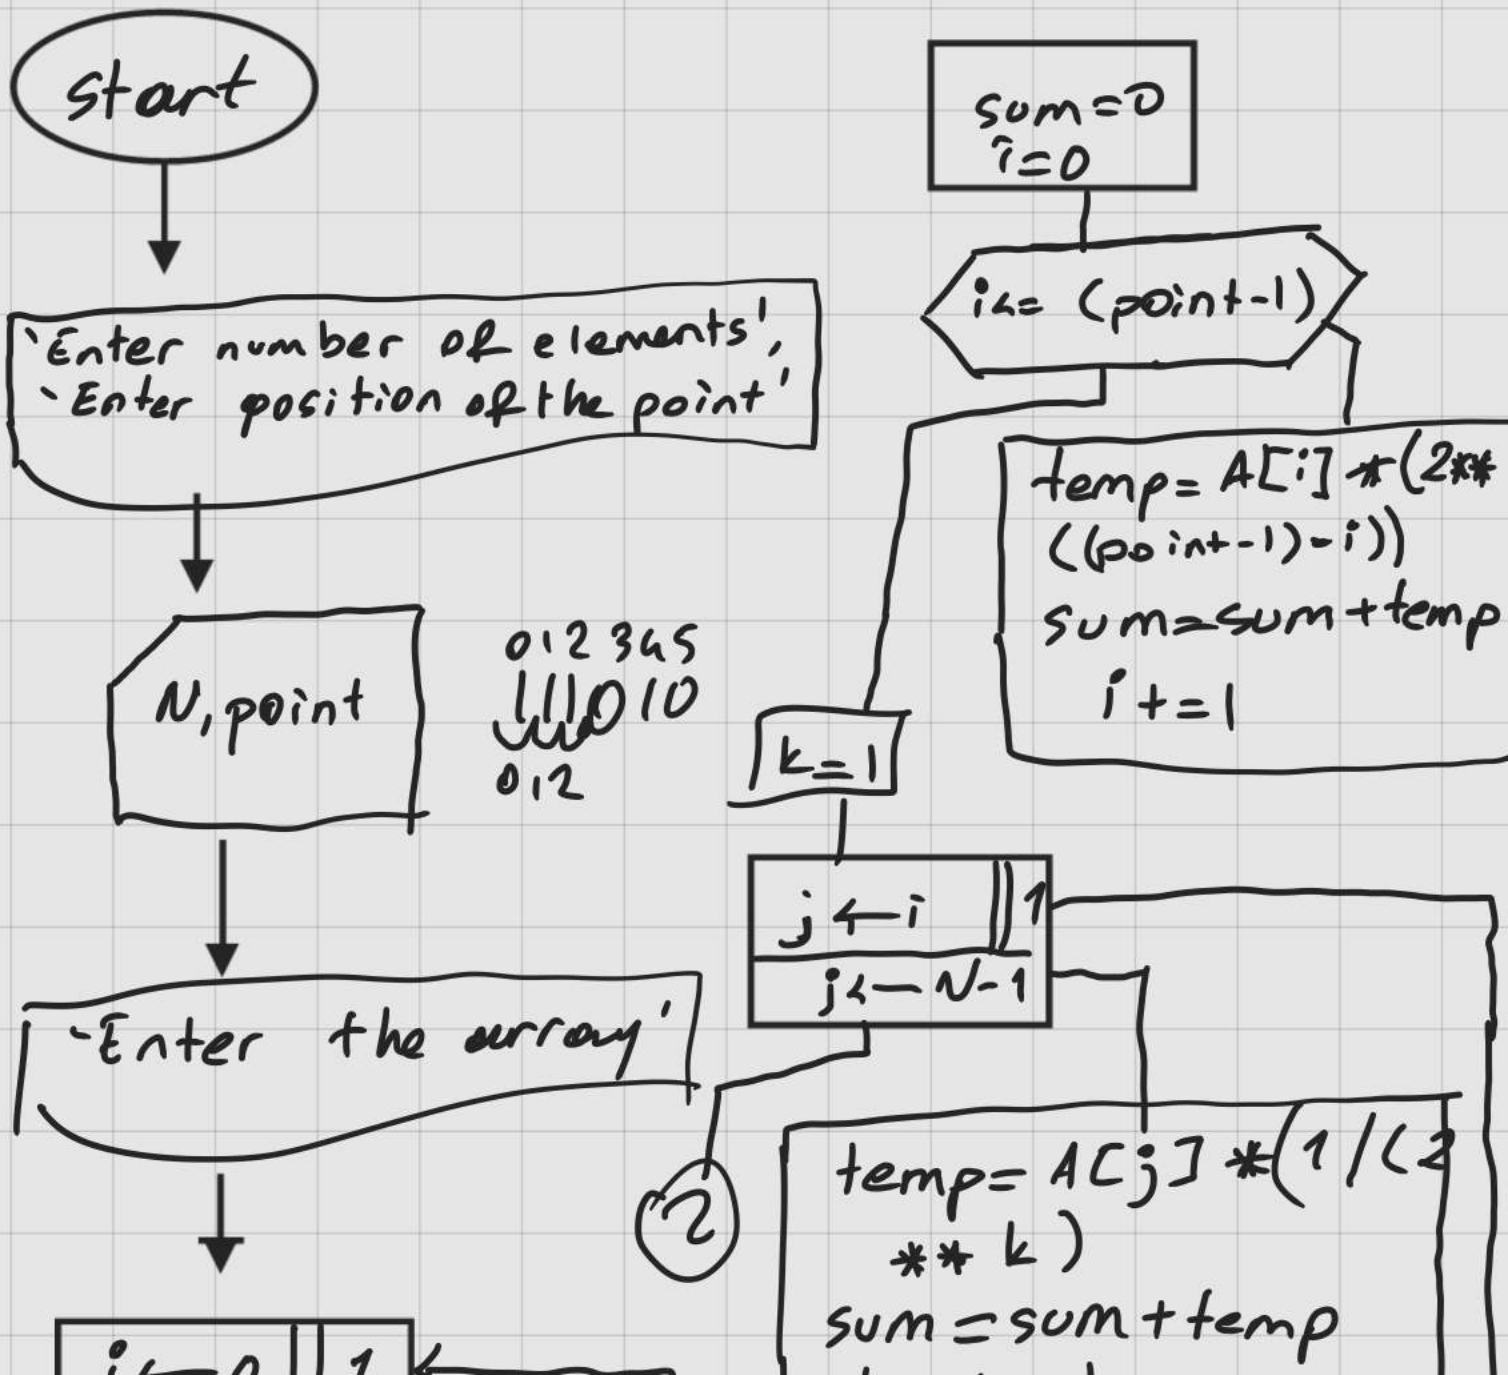 start
'Enter number of elements',
'Enter position of the point'
N, point
012345
111010
012
'Enter the array'
i ← 0 1
sum=0
i=0
i<= (point-1)
temp= A[i] *(2**
((point-1)-i))
sum=sum+temp
i+=1
k=1
j ← i 1
j ← N-1
2
temp= A[j] *(1/(2
** k)
sum=sum+temp